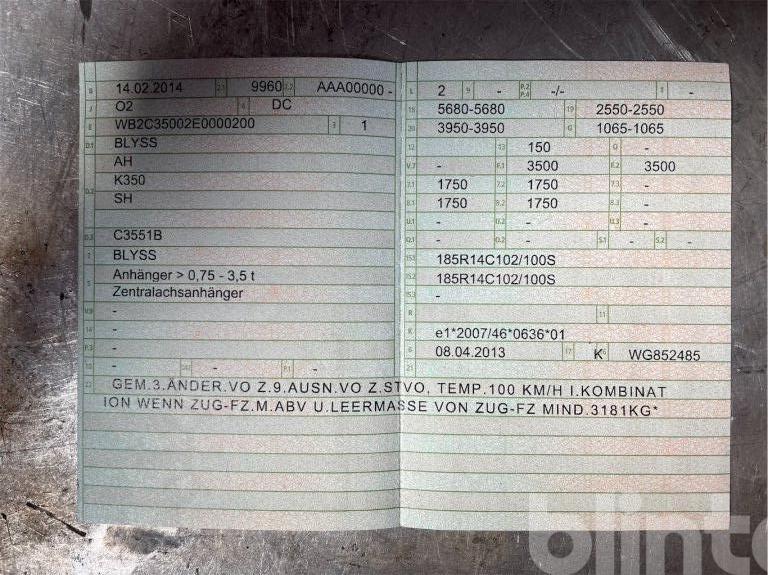 B 14.02.2014 2.1 9960 2.2 AAA00000 - L 2 9 - P.2 P.4 -/- T -
J O2 4 DC 18 5680-5680 19 2550-2550
E WB2C35002E0000200 3 1 20 3950-3950 G 1065-1065
D.1 BLYSS 12 - 13 150 Q -
AH V.7 - F.1 3500 F.2 3500
D.2 K350 7.1 1750 7.2 1750 7.3 -
SH 8.1 1750 8.2 1750 8.3 -
U.1 - U.2 - U.3 -
D.3 C3551B O.1 - O.2 - S.1 - S.2 -
2 BLYSS 15.1 185R14C102/100S
5 Anhänger > 0,75 - 3,5 t 15.2 185R14C102/100S
Zentralachsanhänger 15.3 -
V.9 - R 11
14 - K e1*2007/46*0636*01
P.3 - 6 08.04.2013 17 K 16 WG852485
10 - 14.1 - P.1 - 21
22 GEM.3.ÄNDER.VO Z.9.AUSN.VO Z.STVO, TEMP.100 KM/H I.KOMBINAT
ION WENN ZUG-FZ.M.ABV U.LEERMASSE VON ZUG-FZ MIND.3181KG*